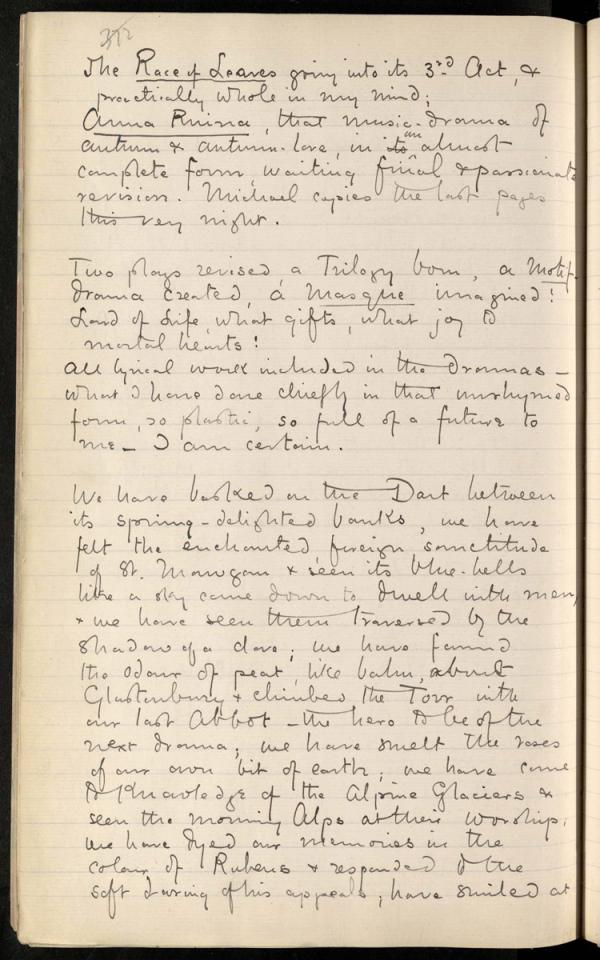 The Race of Leaves going into its 3rd Act, &
practically whole in my mind;
Anna Ruina, that music-drama of
autumn & autumn-love, in its an almost
complete form, waiting final & passionate
revision. Michael copies the last pages
this very night.
Two plays revised, a Trilogy born, a Motif-
drama created, a Masque imagined!
Lord of Life, what gifts, what joy to
mortal hearts!
All lyrical work included in the dramas –
what I have done chiefly in that unrhymed
form, so plastic, so full of a future to
me – I am certain.
We have basked on the Dart between
its spring-delighted banks, we have
felt the enchanted, foreign sanctitude
of St. Mawgan & seen its blue-bells
like a sky come down to dwell with men,
& we have seen them traversed by the
shadow of a dove; we have found
the odour of peat, like balm, about
Glastonbury & climbed the Torr with
our last Abbot – the hero to be of the
next drama; we have smelt the roses
of our own bit of earth; we have come
to knowledge of the Alpine Glaciers &
seen the morning Alps at their worship.
We have dyed our memories in the
colour of Rubens & responded to the
soft daring of his appeals, have smiled at